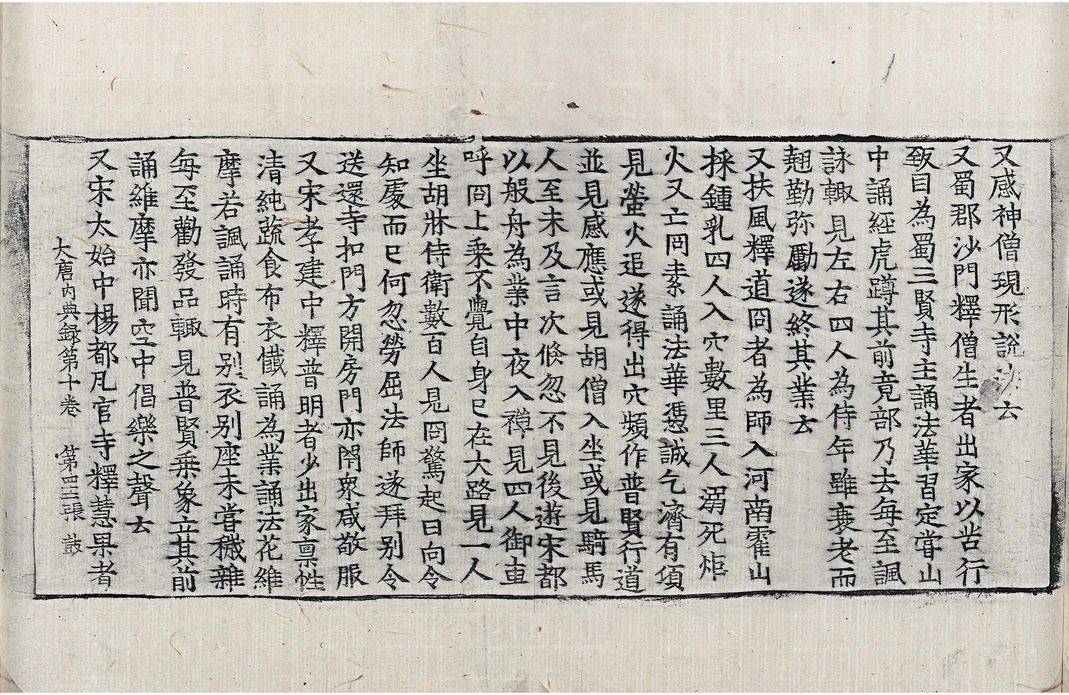 又感神僧現形說法云
又蜀郡沙門釋僧生者出家以苦行
致目為蜀三賢寺主誦法華習定嘗山
中誦經虎蹲其前竟部乃去每至諷
詠輙見左右四人為侍年雖衰老而
翹勤弥勵遂終其業云
又扶風釋道冏者為師入河南霍山
採鍾乳四人入穴數里三人溺死炬
火又亡冏素誦法華憑誠乞濟有頃
見螢火迡遂得出穴頻作普賢行道
並見感應或見胡僧入坐或見騎馬
人至未及言次倐忽不見後遊宋都
以般舟為業中夜入禪見四人御車
呼冏上乘不覺自身已在大路見一人
坐胡牀侍衛數百人見冏驚起曰向令
知處而已何忽勞屈法師遂拜別令
送還寺扣門方開房門亦閇衆咸敬服
又宋孝建中釋普明者少出家稟性
清純蔬食布衣懺誦為業誦法花維
摩若諷誦時有別衣別座未嘗穢雜
每至勸發品輙見普賢乘象立其前
誦維摩亦聞空中倡樂之聲云
又宋太始中楊都凡官寺釋慧果者
大唐內典録第十卷 第四三張